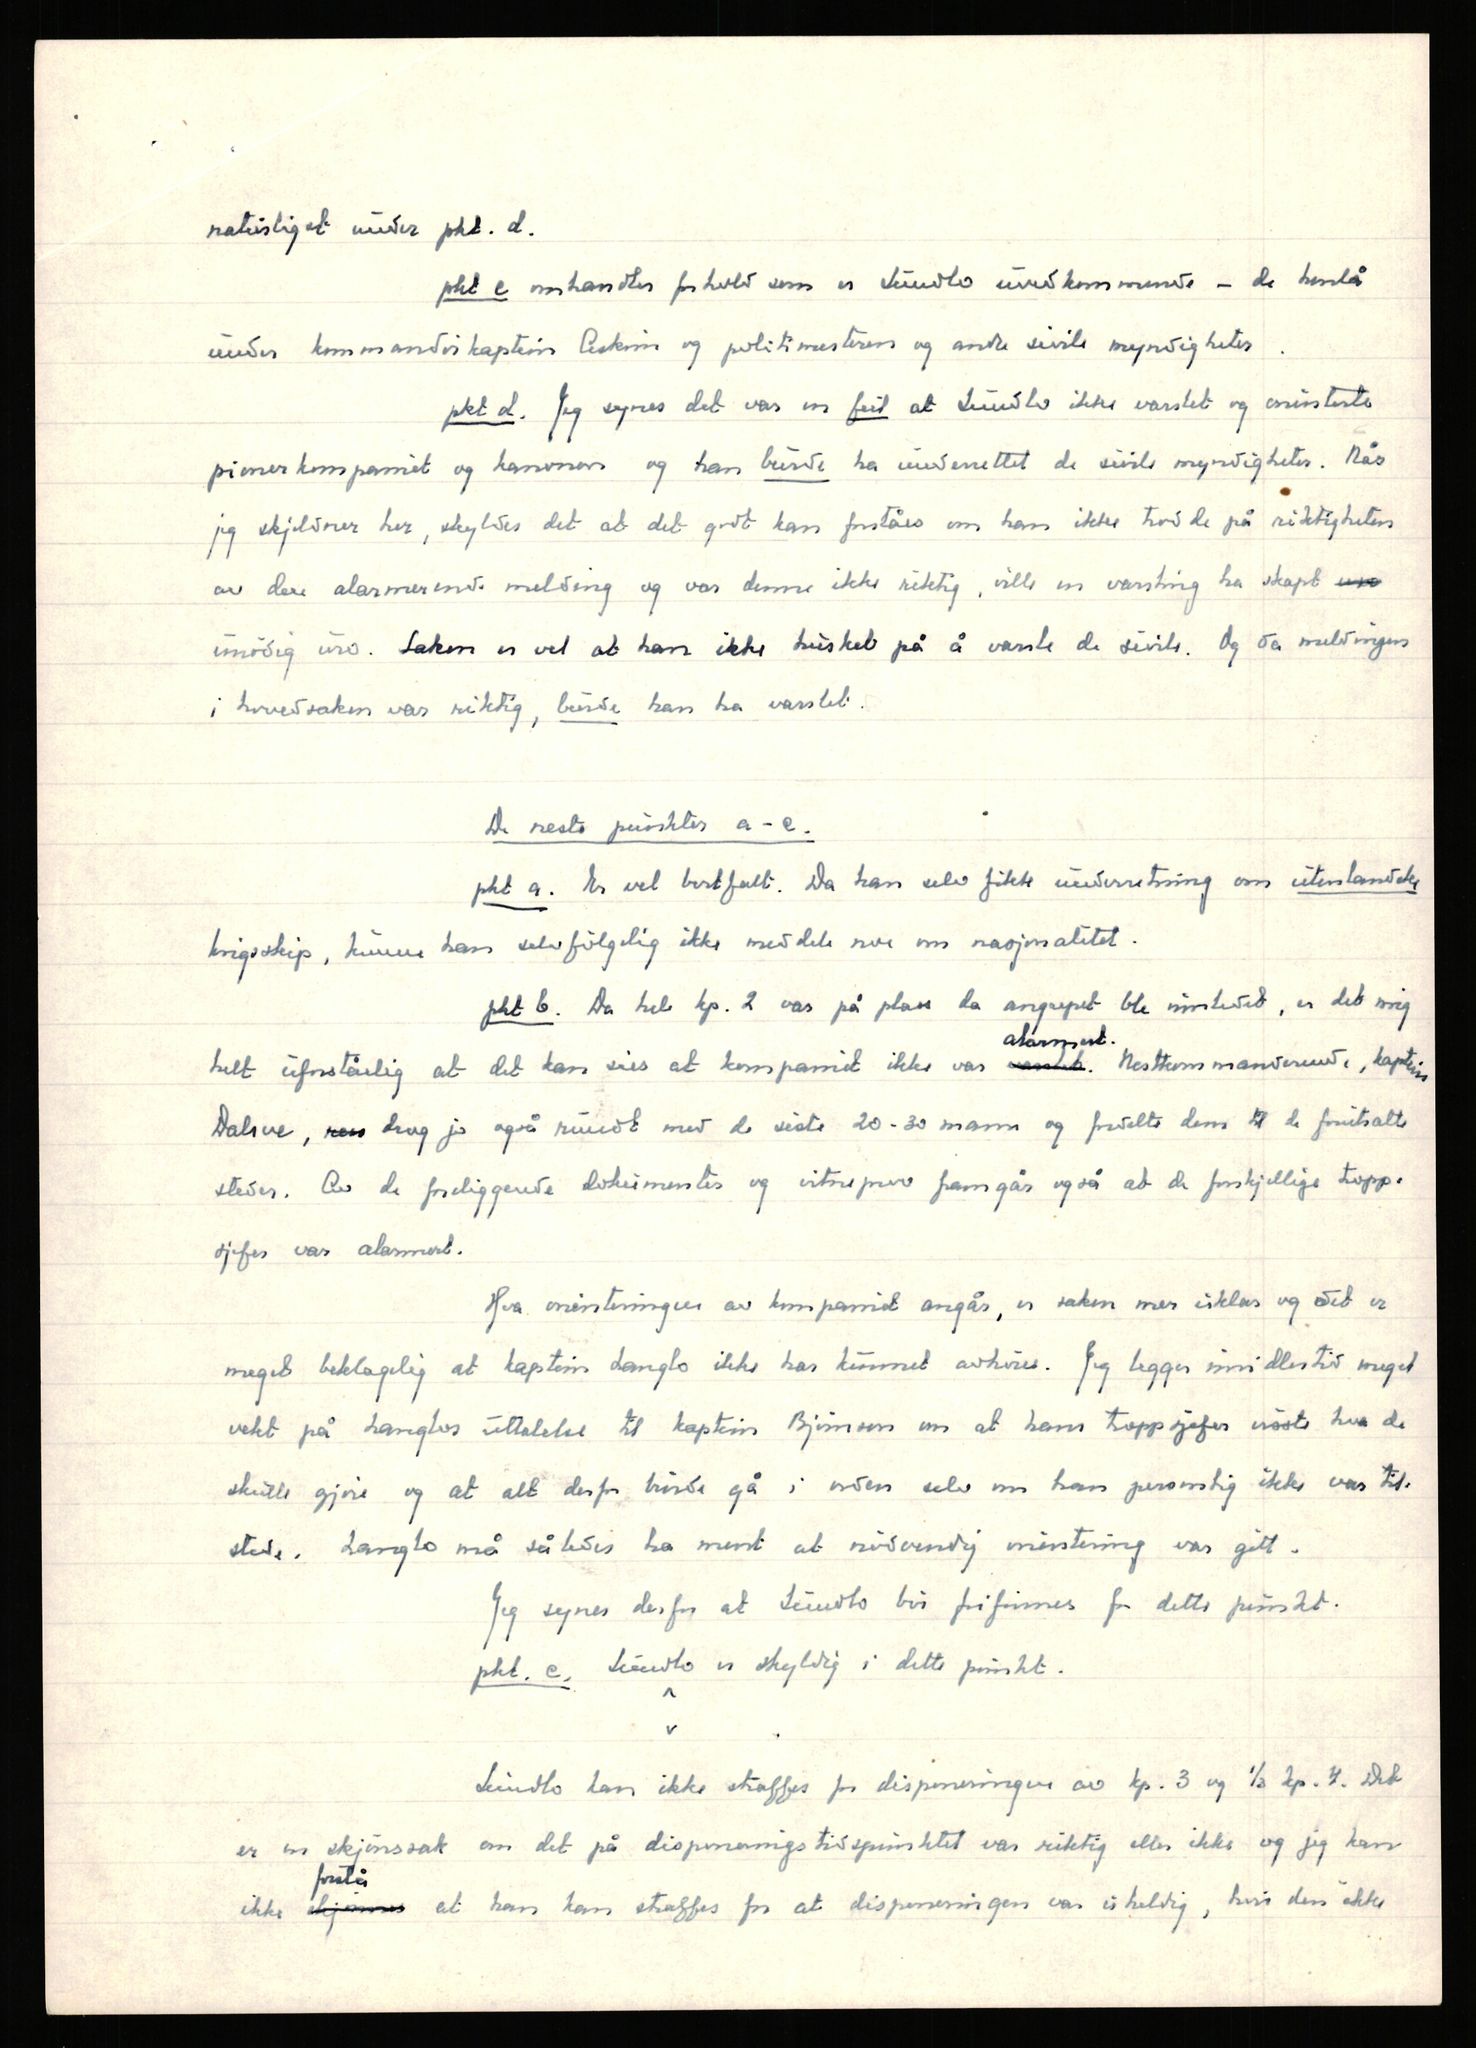 naturligst under pkt. d.
pkt c omhandler forhold som er Sundlo uvedkommende – de henlå
under kommandørkaptein Askim og politimesteren og andre sivile myndigheter.
pkt d. Jeg synes det var en feil at Sundlo ikke varslet og orienterte
pionerkompaniet og kanonen og han burde ha underrettet de sivile myndigheter. Når
jeg skjelner her, skyldes det at det godt kan forståes om han ikke trodde på riktigheten
av den alarmerende melding og var denne ikke riktig, ville en varsling ha skapt uro
unødig uro. Saken er vel at han ikke husket på å varsle de sivile. Og da meldingen
i hovedsaken var riktig, burde han ha varslet.
De neste punkter a-c.
pkt a. Er vel bortfalt. Da han selv fikk underretning om utenlandske
krigsskip, kunne han selvfølgelig ikke meddele noe om nasjonalitet.
pkt b. Da hele kp. 2 var på plass da angrepet ble innledet, er det mig
alarmert.
helt uforståelig at det kan sies at kompaniet ikke var varslet. Nestkommanderende, kaptein
Dalsve, drog jo også rundt med de siste 20-30 mann og fordelte dem til de forutsatte
steder. Av de foreliggende dokumenter og vitneprov framgår også at de forskjellige tropp-
sjefer var alarmert.
Hva orienteringen av kompaniet angår, er saken mer uklar og det er
meget beklagelig at kaptein Langlo ikke har kunnet avhøres. Jeg legger imidlertid meget
vekt på Langlos uttalelse til kaptein Bjørnson om at hans troppsjefer visste hva de
skulle gjøre og at alt derfor burde gå i orden selv om han personlig ikke var til-
stede. Langlo må således ha ment at nødvendig orientering var gitt.
Jeg synes derfor at Sundlo bør frifinnes for dette punkt.
pkt. c. Sundlo er skyldig i dette punkt.
Sundlo kan ikke straffes for disponeringen av kp. 3 og 1/2 kp. 4. Det
er en skjønssak om det på disponeringstidspunktet var riktig eller ikke og jeg kan
forstå
ikke skjønne at han kan straffes for at disponeringen var uheldig, hvis den ikke